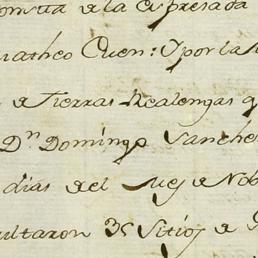 de la Expresada
Matheo Cuen: Y por la
de Tierras Realengas q
Dn Domingo Sanche
dias del Mes de Nob
ultaron 3½ Sitios de